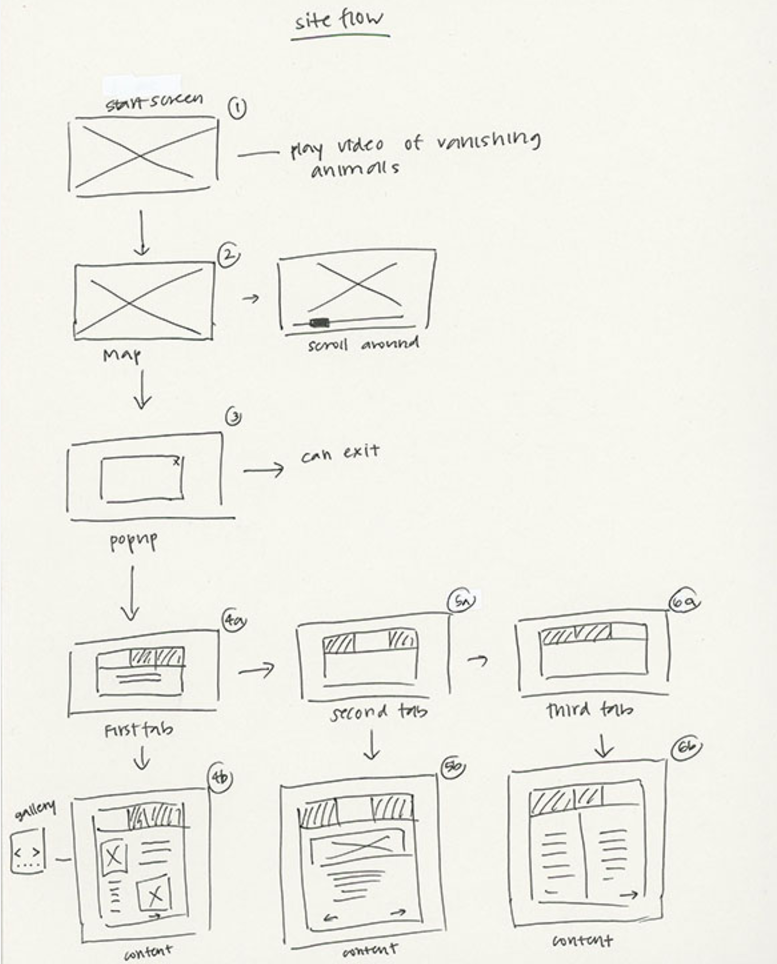 site flow
start screen
1
play video of vanishing
animals
2
Map
scroll around
3
x
can exit
popup
4a
5a
6a
First tab
second tab
third tab
4b
5b
6b
gallery
< >
content
content
content